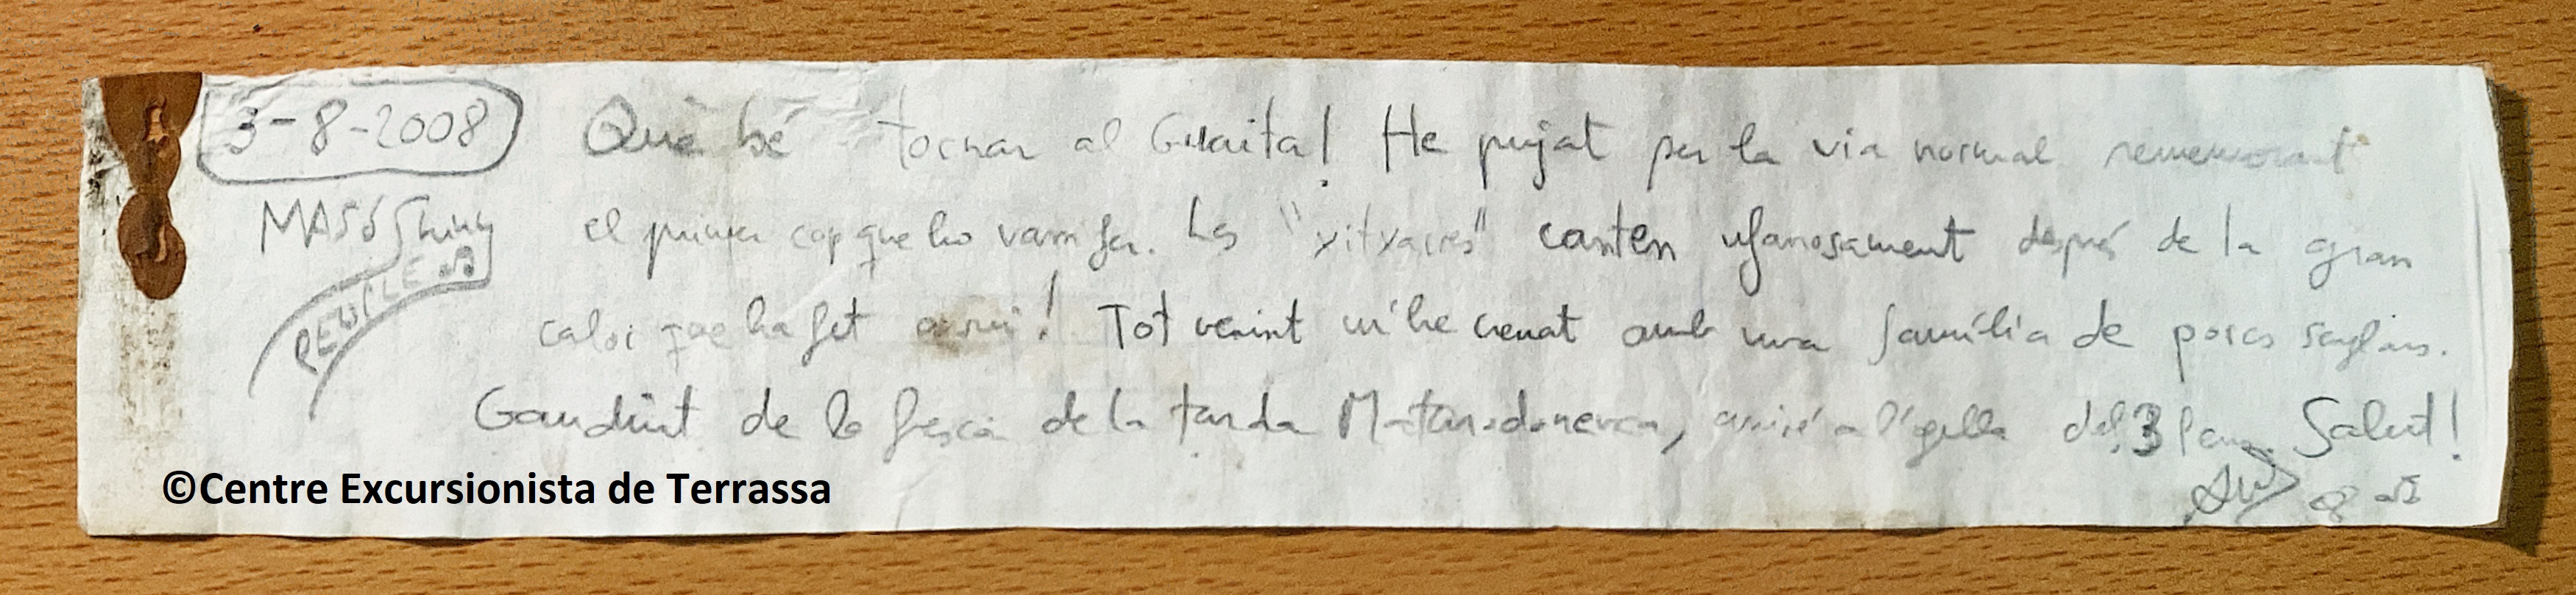 3-8-2008
MASÓ
Què bé tornar al Guaita! He pujat per la via normal rememorant
el primer cop que ho vam fer. Les "xitxarres" canten ufanosament després de la gran
calor que ha fet avui! Tot venint m'he creuat amb una família de porcs senglars.
Gaudint de la fresca de la tarda Matarodonenca, a l'agulla del 3 Salut!
©Centre Excursionista de Terrassa